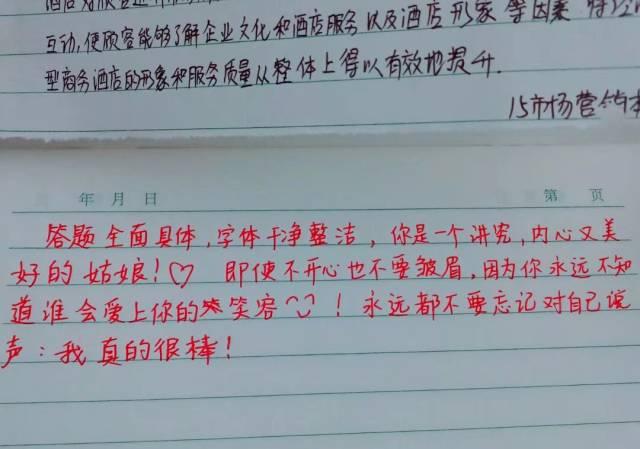 互动,使顾客能够了解企业文化和酒店服务以及酒店形象等因素
型商务酒店的形象和服务质量从整体上得以有效地提升.
15市场营销本
年 月 日 第 页
答题全面具体,字体干净整洁,你是一个讲究,内心又美
好的姑娘!♡ 即使不开心也不要皱眉,因为你永远不知
道谁会爱上你的笑容!永远都不要忘记对自己说
声:我真的很棒!